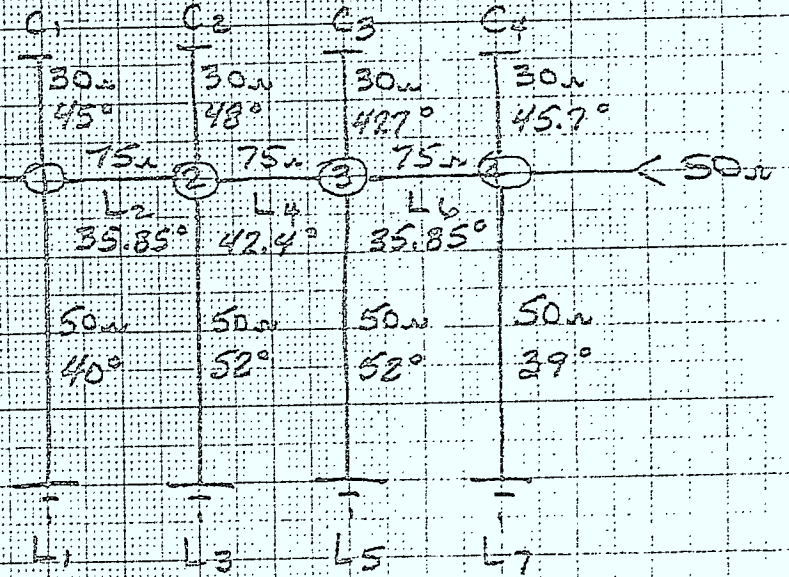 C1 C2 C3 C4
30Ω 30Ω 30Ω 30Ω
45° 48° 47.7° 45.7°
75Ω 75Ω 75Ω
1 2 3 4 50Ω
L2 L4 L6
35.85° 42.4° 35.85°
50Ω 50Ω 50Ω 50Ω
40° 52° 52° 39°
L1 L3 L5 L7